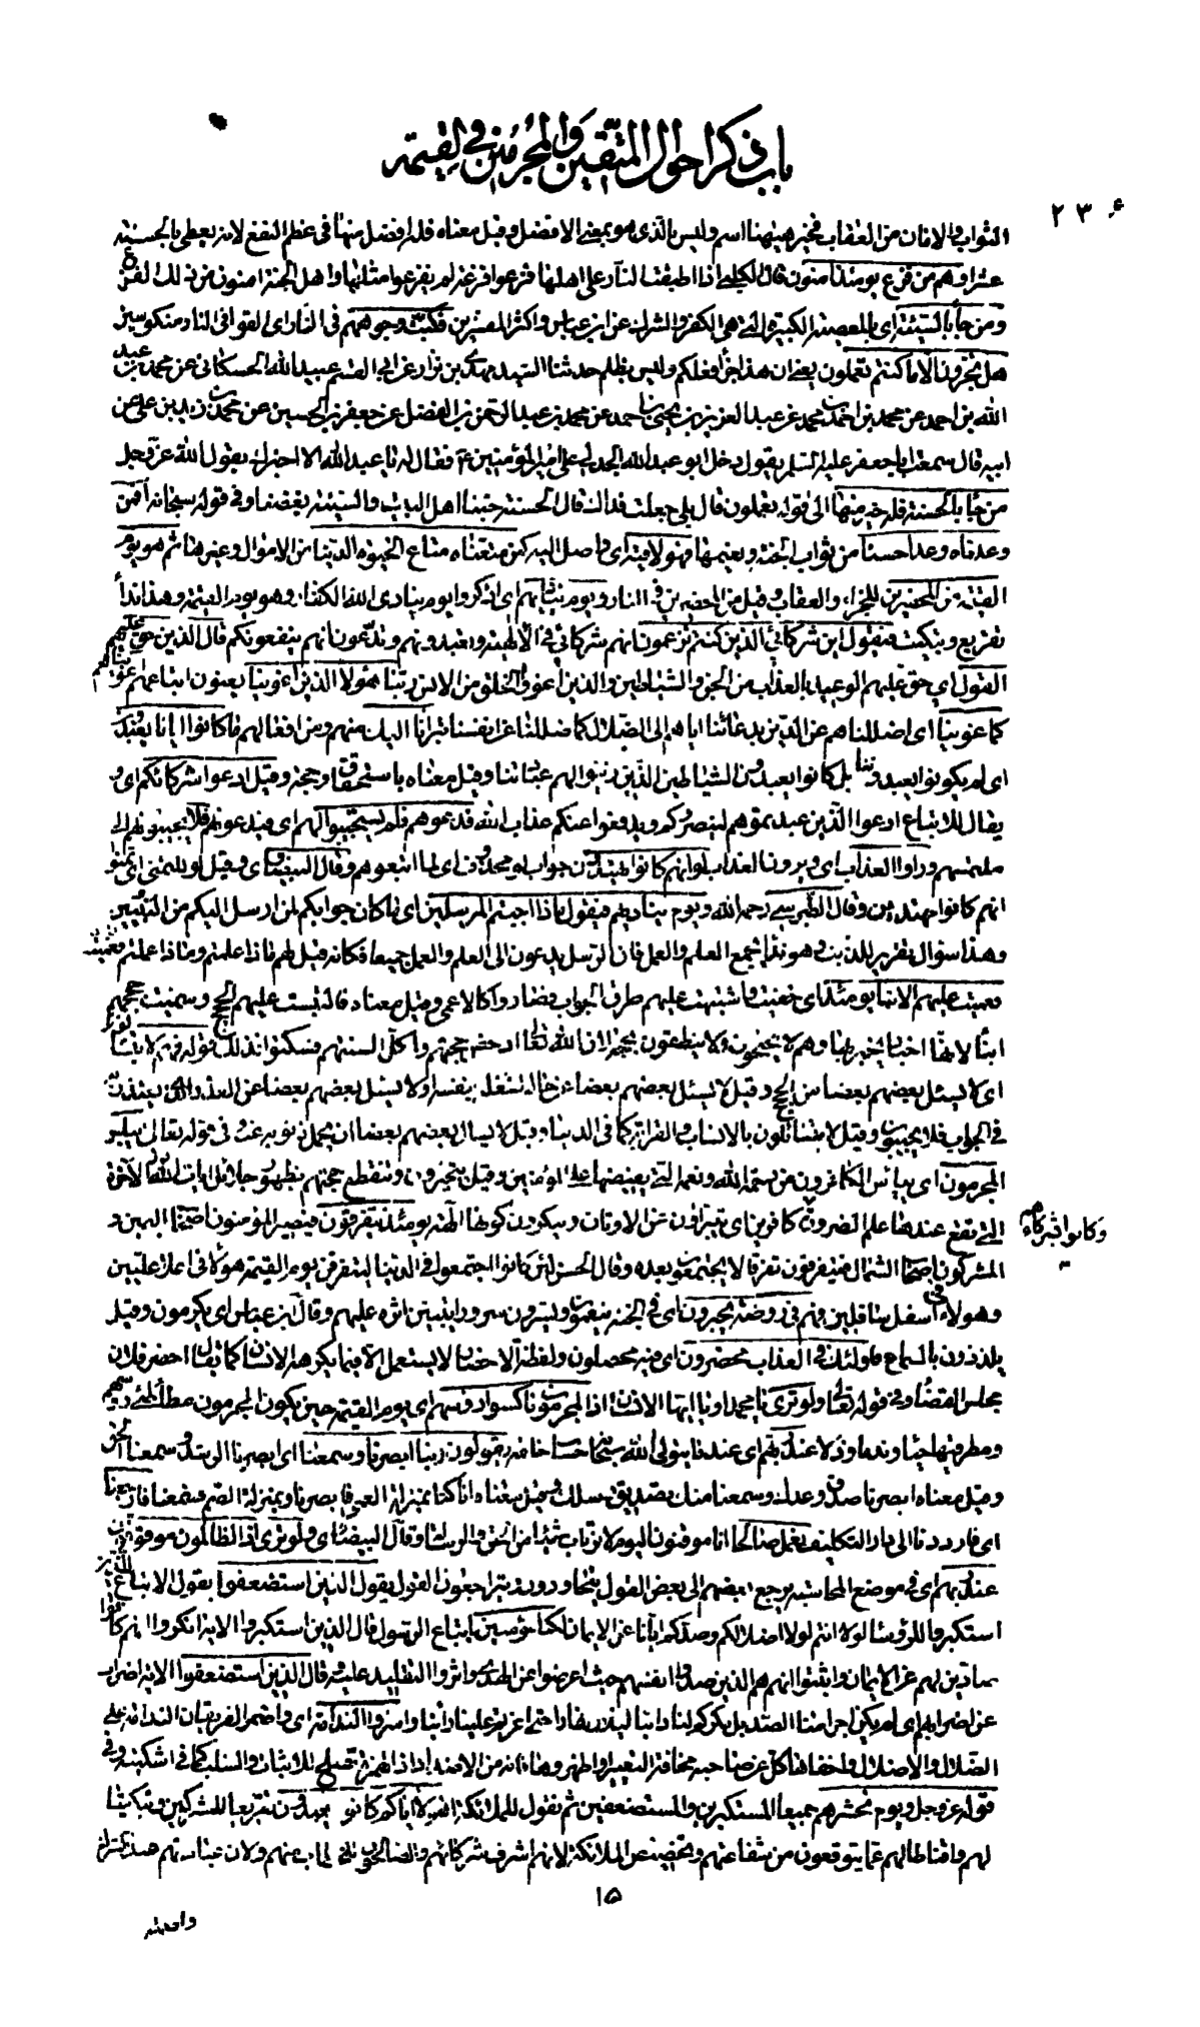 باب ذكر احوال المتقين والمجرمين في القيمة
٢٣٠
الثواب والامان من العقاب فخير هيهنا اسم وليس بالذي هو بمعنى الافضل وقيل معناه فله افضل منها في عظم النفع لانه يعطى بالحسنة
عشرا وهم من فزع يومئذ آمنون قال الكلبي اذا اطبقت النار على اهلها فزعوا فزعة لم يفزعوا مثلها واهل الجنة امنون من ذلك الفزع
ومن جاء بالسيئة اى بالمعصية الكبيرة التي هي الكفر والشرك عن ابن عباس واكثر المفسرين فكبت وجوههم في النار اى القوا في النار منكوسين
هل تجزون الا ما كنتم تعملون يعنى ان هذا جزاء فعلكم وليس بظلم حدثنا السيد مهدى بن نزار عن ابى القسم عبيد الله الحسكانى عن محمد بن عبد
الله بن احمد عن محمد بن احمد بن محمد عن عبد العزيز بن يحيى بن احمد عن محمد بن عبد الرحمن بن الفضل عن جعفر بن الحسين عن محمد بن زيد بن على عن
ابيه قال سمعت ابا جعفر عليه السلم يقول دخل ابو عبد الله الجدلى على امير المؤمنين ع فقال له يا عبد الله الا اخبرك بقول الله عز وجل
من جاء بالحسنة فله خير منها الى قوله يعملون قال بلى جعلت فداك قال الحسنة حبنا اهل البيت والسيئة بغضنا وفى قوله سبحانه افمن
وعدناه وعدا حسنا من ثواب الجنة ونعيمها فهو لاقيه اى واصل اليه كمن متعناه متاع الحيوة الدنيا من الاموال وغيرها ثم هو يوم
القيمة من المحضرين للجزاء والعقاب وقيل من المحضرين في النار ويوم يناديهم اى اذكروا يوم ينادى الله الكفار وهو يوم القيمة وهذا نداء
تقريع وتبكيت فيقول اين شركائى الذين كنتم تزعمون انهم شركائى في الالهية وتعبدونهم وتدعون انهم ينفعونكم قال الذين حق عليهم
القول اى حق عليهم الوعيد بالعذاب من الجن والشياطين والذين اغووا الخلق من الانس ربنا هؤلاء الذين اغوينا يعنون اتباعهم اغويناهم
كما غوينا اى اضللناهم عن الدين بدعائنا اياهم الى الضلال كما ضللنا نحن انفسنا تبرأنا اليك منهم ومن افعالهم ما كانوا ايانا يعبدون
اى لم يكونوا يعبدوننا بل كانوا يعبدون الشياطين الذين زينوا لهم عبادتنا وقيل معناه باستحقاق وحجة وقيل ادعوا شركائكم اى و
يقال للاتباع ادعوا الذين عبدتموهم لينصروكم ويدفعوا عنكم عذاب الله فدعوهم فلم يستجيبوا لهم اى فيدعونهم فلا يجيبونهم الى
ملتمسهم وراوا العذاب اى ويرون العذاب لو انهم كانوا يهتدون جواب لو محذوف اى لما اتبعوهم وقال البيضاوى وقيل لو للتمنى اى تمنوا
انهم كانوا مهتدين وقال الطبرسى رحمه الله ويوم يناديهم فيقول ماذا اجبتم المرسلين اى ما كان جوابكم لمن ارسل اليكم من النبيين
وهذا سؤال تقرير للذنب وهو نداء يجمع العلم والعمل فان الرسل يدعون الى العلم والعمل جميعا فكانه قيل لهم ماذا علمتم وماذا عملتم
فعميت عليهم الانباء يومئذ اى خفيت واشتبهت عليهم طرق الجواب فصاروا كالاعمى وقيل معناه فالتبست عليهم الحجج وسميت حججهم
انباء لانها اخبار يخبر بها وهم لا يحتجون ولا ينطقون بحجة لان الله تعالى ادحض حجتهم واكل السنتهم فسكتوا فذلك قوله فهم لا يتساءلون
اى لا يسئل بعضهم بعضا عن الحجج وقيل لا يسئل بعضهم بعضا عن حاله لشغله بنفسه ولا يسئل بعضهم بعضا عن العذر الذى يعتذر به
في الجواب فلا يجيبون وقيل لا يتسائلون بالانساب والقرابة كما في الدنيا وقيل لا يسال بعضهم بعضا ان يحمل ذنوبه عنه وفى قوله تعالى يبلس
المجرمون اى ييأس الكافرون من رحمة الله ونعمه التي يفيضها على المؤمنين وقيل يتحيرون وتنقطع حجتهم بظهور جلائل ايات الاخرة
التي تقع عندها علم الضرورة كافرين اى يتبرأون عن الاوثان وينكرون كونها الهة يومئذ يتفرقون فيصير المؤمنون اصحاب اليمين و
وكانوا بشركائهم
المشركون اصحاب الشمال فيتفرقون تفرقا لا يجتمعون بعده وقال الحسن لئن كانوا اجتمعوا في الدنيا ليتفرقن يوم القيمة هؤلاء في اعلى عليين
وهؤلاء في اسفل سافلين فهم في روضة يحبرون اى في الجنة ينعمون ويسرون سرورا يتبين اثره عليهم وقال ابن عباس اى يكرمون وقيل
يلذذون بالسماع فاولئك في العذاب محضرون اى فيه محصلون ولفظة الاحضار لا يستعمل الا فيما يكرهه الانسان كما يقال احضر فلان
مجلس القضاء وفى قوله تعالى ولو ترى يا محمد او يا ايها الانسان اذ المجرمون ناكسوا رؤسهم اى يوم القيمة حين يكون المجرمون مطاطئى رؤسهم
ومطرقيها حياء وندما وذلا عند ربهم اى عندما يتولى الله سبحانه حساب خلقه يقولون ربنا ابصرنا وسمعنا اى ابصرنا الرشد وسمعنا الحق
وقيل معناه ابصرنا صدق وعدك وسمعنا منك تصديق رسلك وقيل معناه انا كنا بمنزلة العمى فابصرنا وبمنزلة الصم فسمعنا فارجعنا
اى فارددنا الى دار التكليف نعمل صالحا انا موقنون اليوم لا نرتاب شيئا من الحق والرسالة وقال البيضاوى ولو ترى اذ الظالمون موقوفون
عند ربهم اى في موضع المحاسبة يرجع بعضهم الى بعض القول يتحاورون ويتراجعون القول يقول الذين استضعفوا يقول الاتباع للذين
استكبروا للرؤساء لولا انتم لولا اضلالكم وصدكم ايانا عن الايمان لكنا مؤمنين باتباع الرسول قال الذين استكبروا الاية انكروا انهم كانوا
صادين لهم عن الايمان واثبتوا انهم هم الذين صدوا انفسهم حيث اعرضوا عن الهدى واثروا التقليد عليه وقال الذين استضعفوا الاية اضراب
عن اضرابهم اى لم يكن اجرامنا الصد بل مكركم لنا دائبا ليلا ونهارا حتى اغرتم علينا راينا واسروا الندامة اى واضمر الفريقان الندامة على
الضلال والاضلال واخفاها كل عن صاحبه مخافة التعيير او اظهروها فانه من الاضداد اذ الهمزة تصلح للاثبات والسلب كما في اشكيته وفى
قوله عز وجل ويوم نحشرهم جميعا المستكبرين والمستضعفين ثم نقول للملائكة اهؤلاء اياكم كانوا يعبدون تقريعا للمشركين وتبكيتا
لهم واقناطا لهم عما يتوقعون من شفاعتهم وتخصيص الملائكة لانهم اشرف شركائهم والصالحون للخطاب منهم ولان عبادتهم مبدء الشرك
١٥